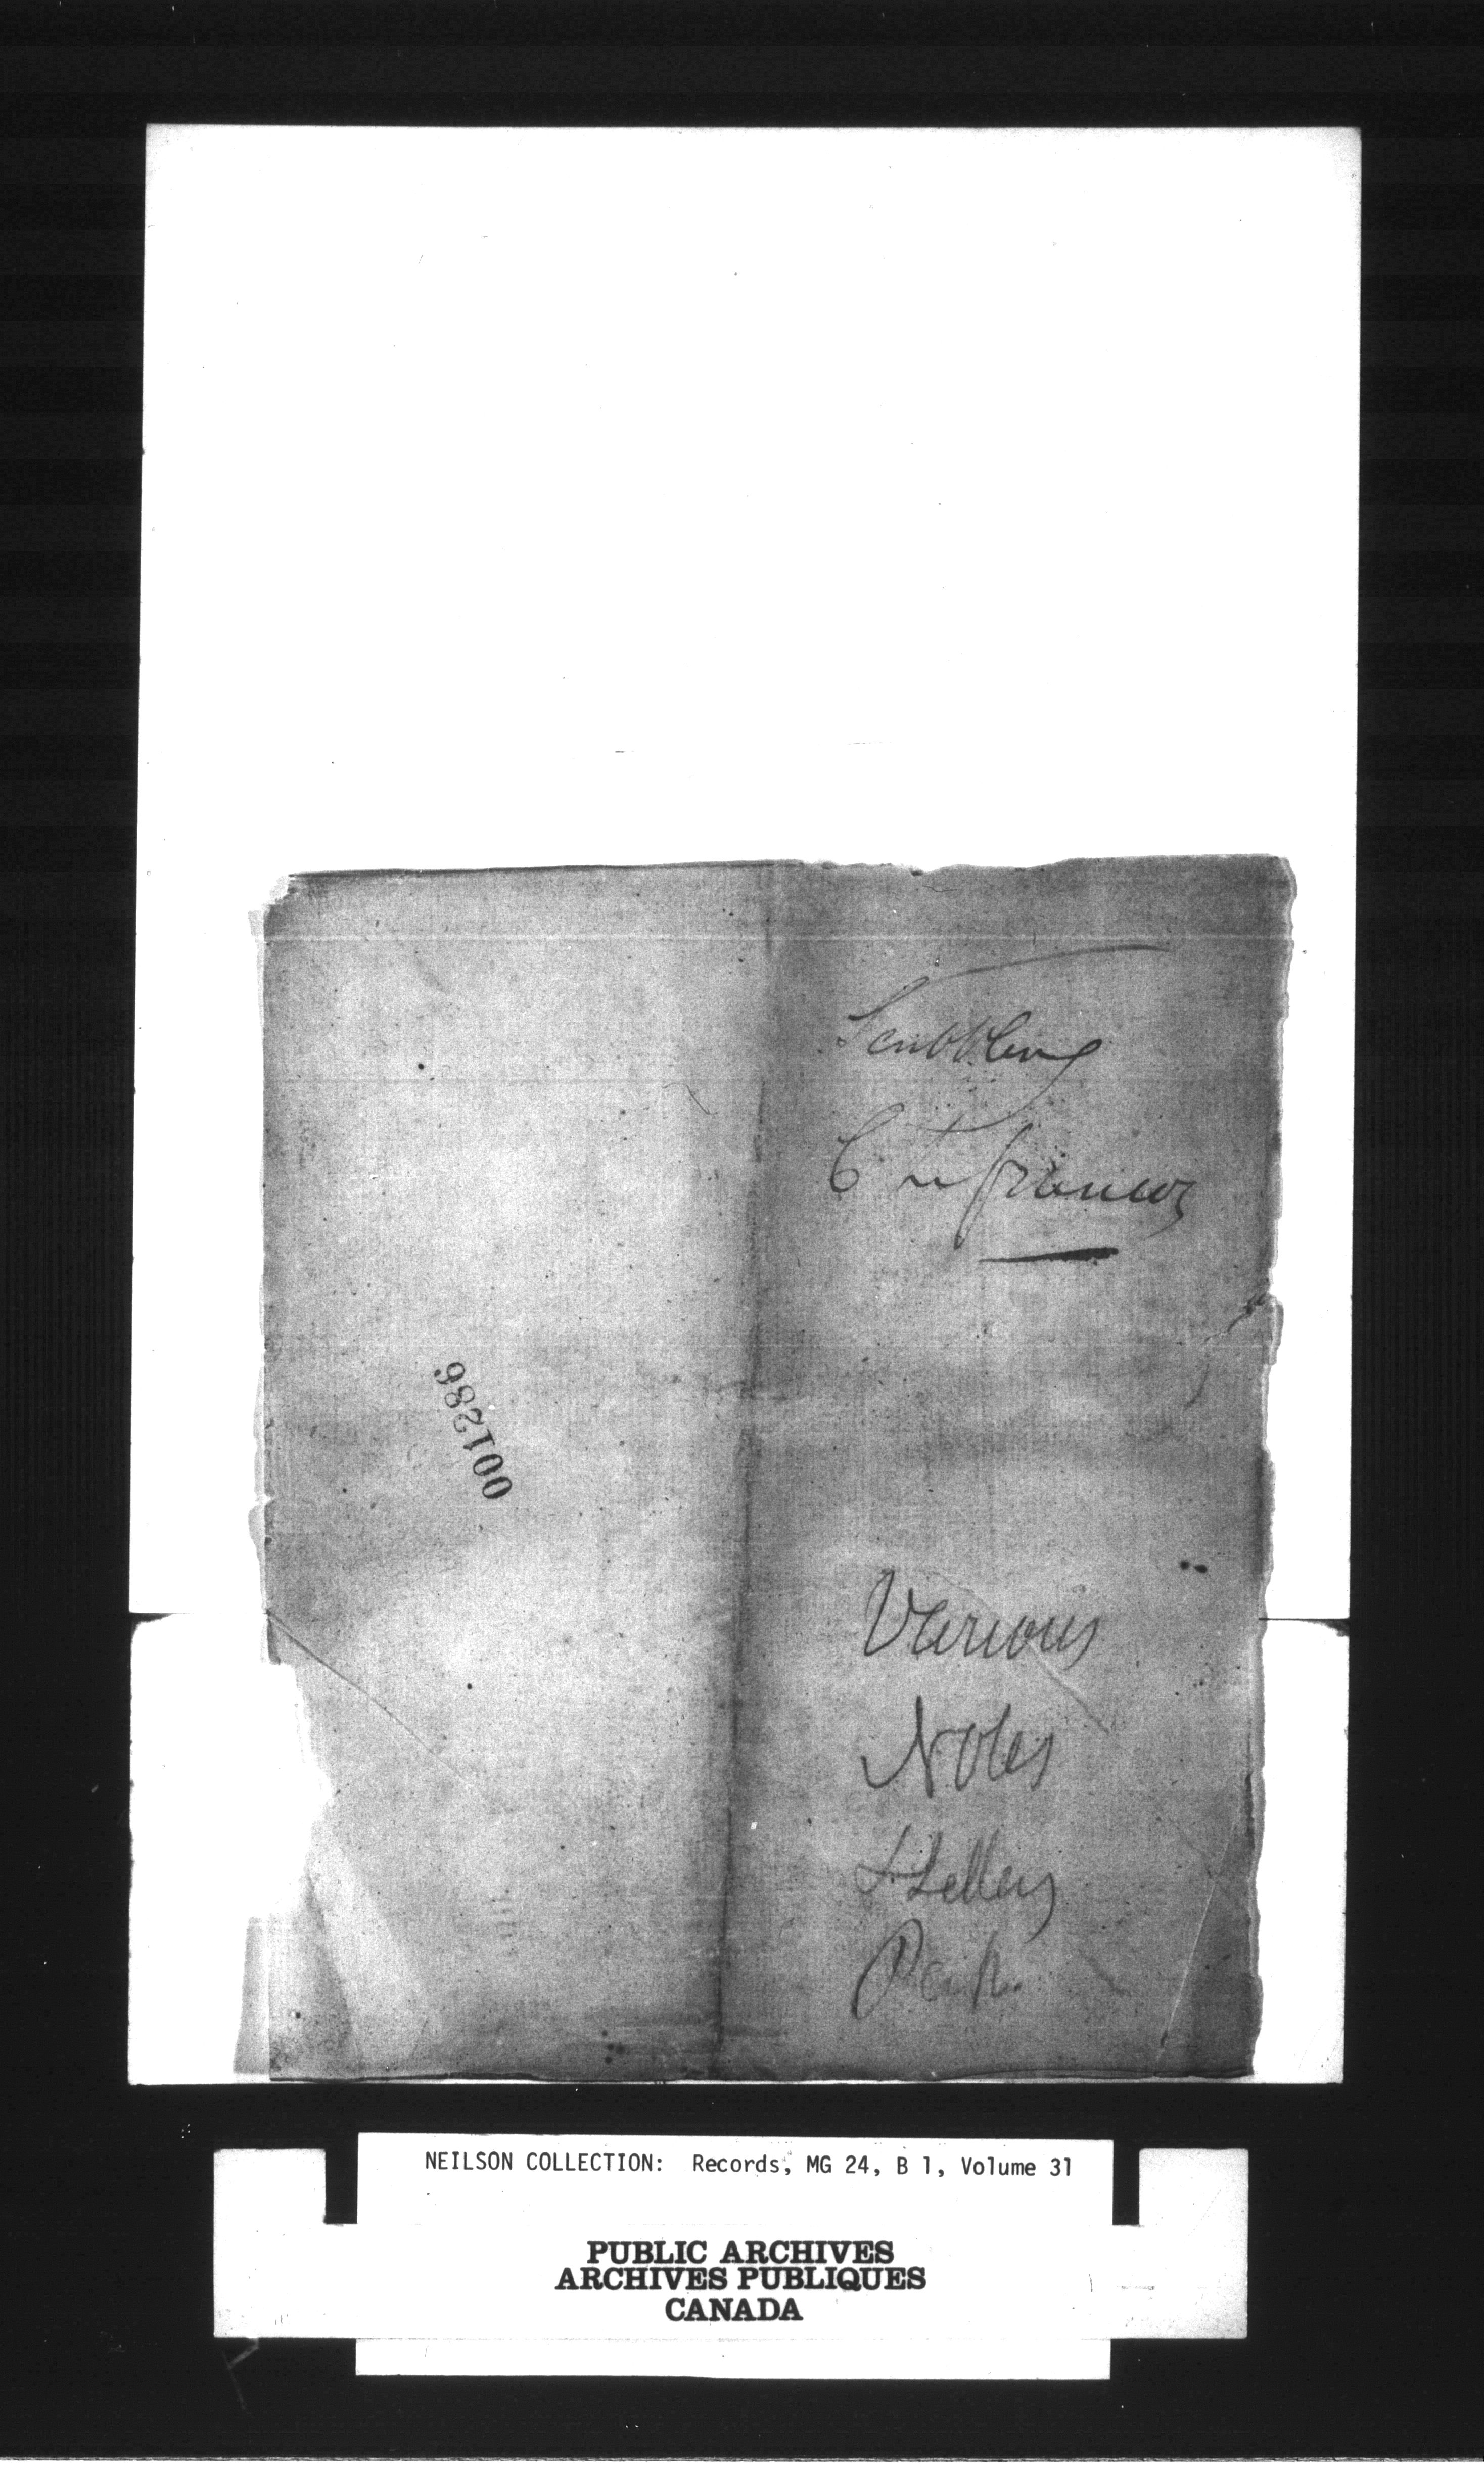 Scribbling
Various
Notes
& Letters
001286
NEILSON COLLECTION: Records, MG 24, B 1, Volume 31
PUBLIC ARCHIVES
ARCHIVES PUBLIQUES
CANADA